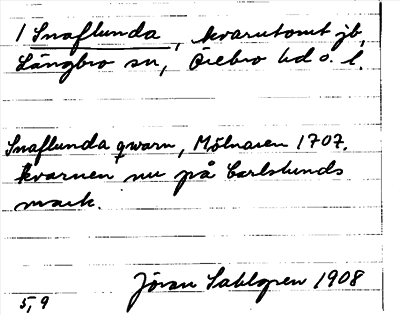 1 Snaflunda, kvarntomt jb,
Långbro sn, Örebro hd o. l.
Snaflunda qwarn, Mölnaren 1707.
kvarnen nu på Carlslunds
mark.
Jöran Sahlgren 1908
5,9